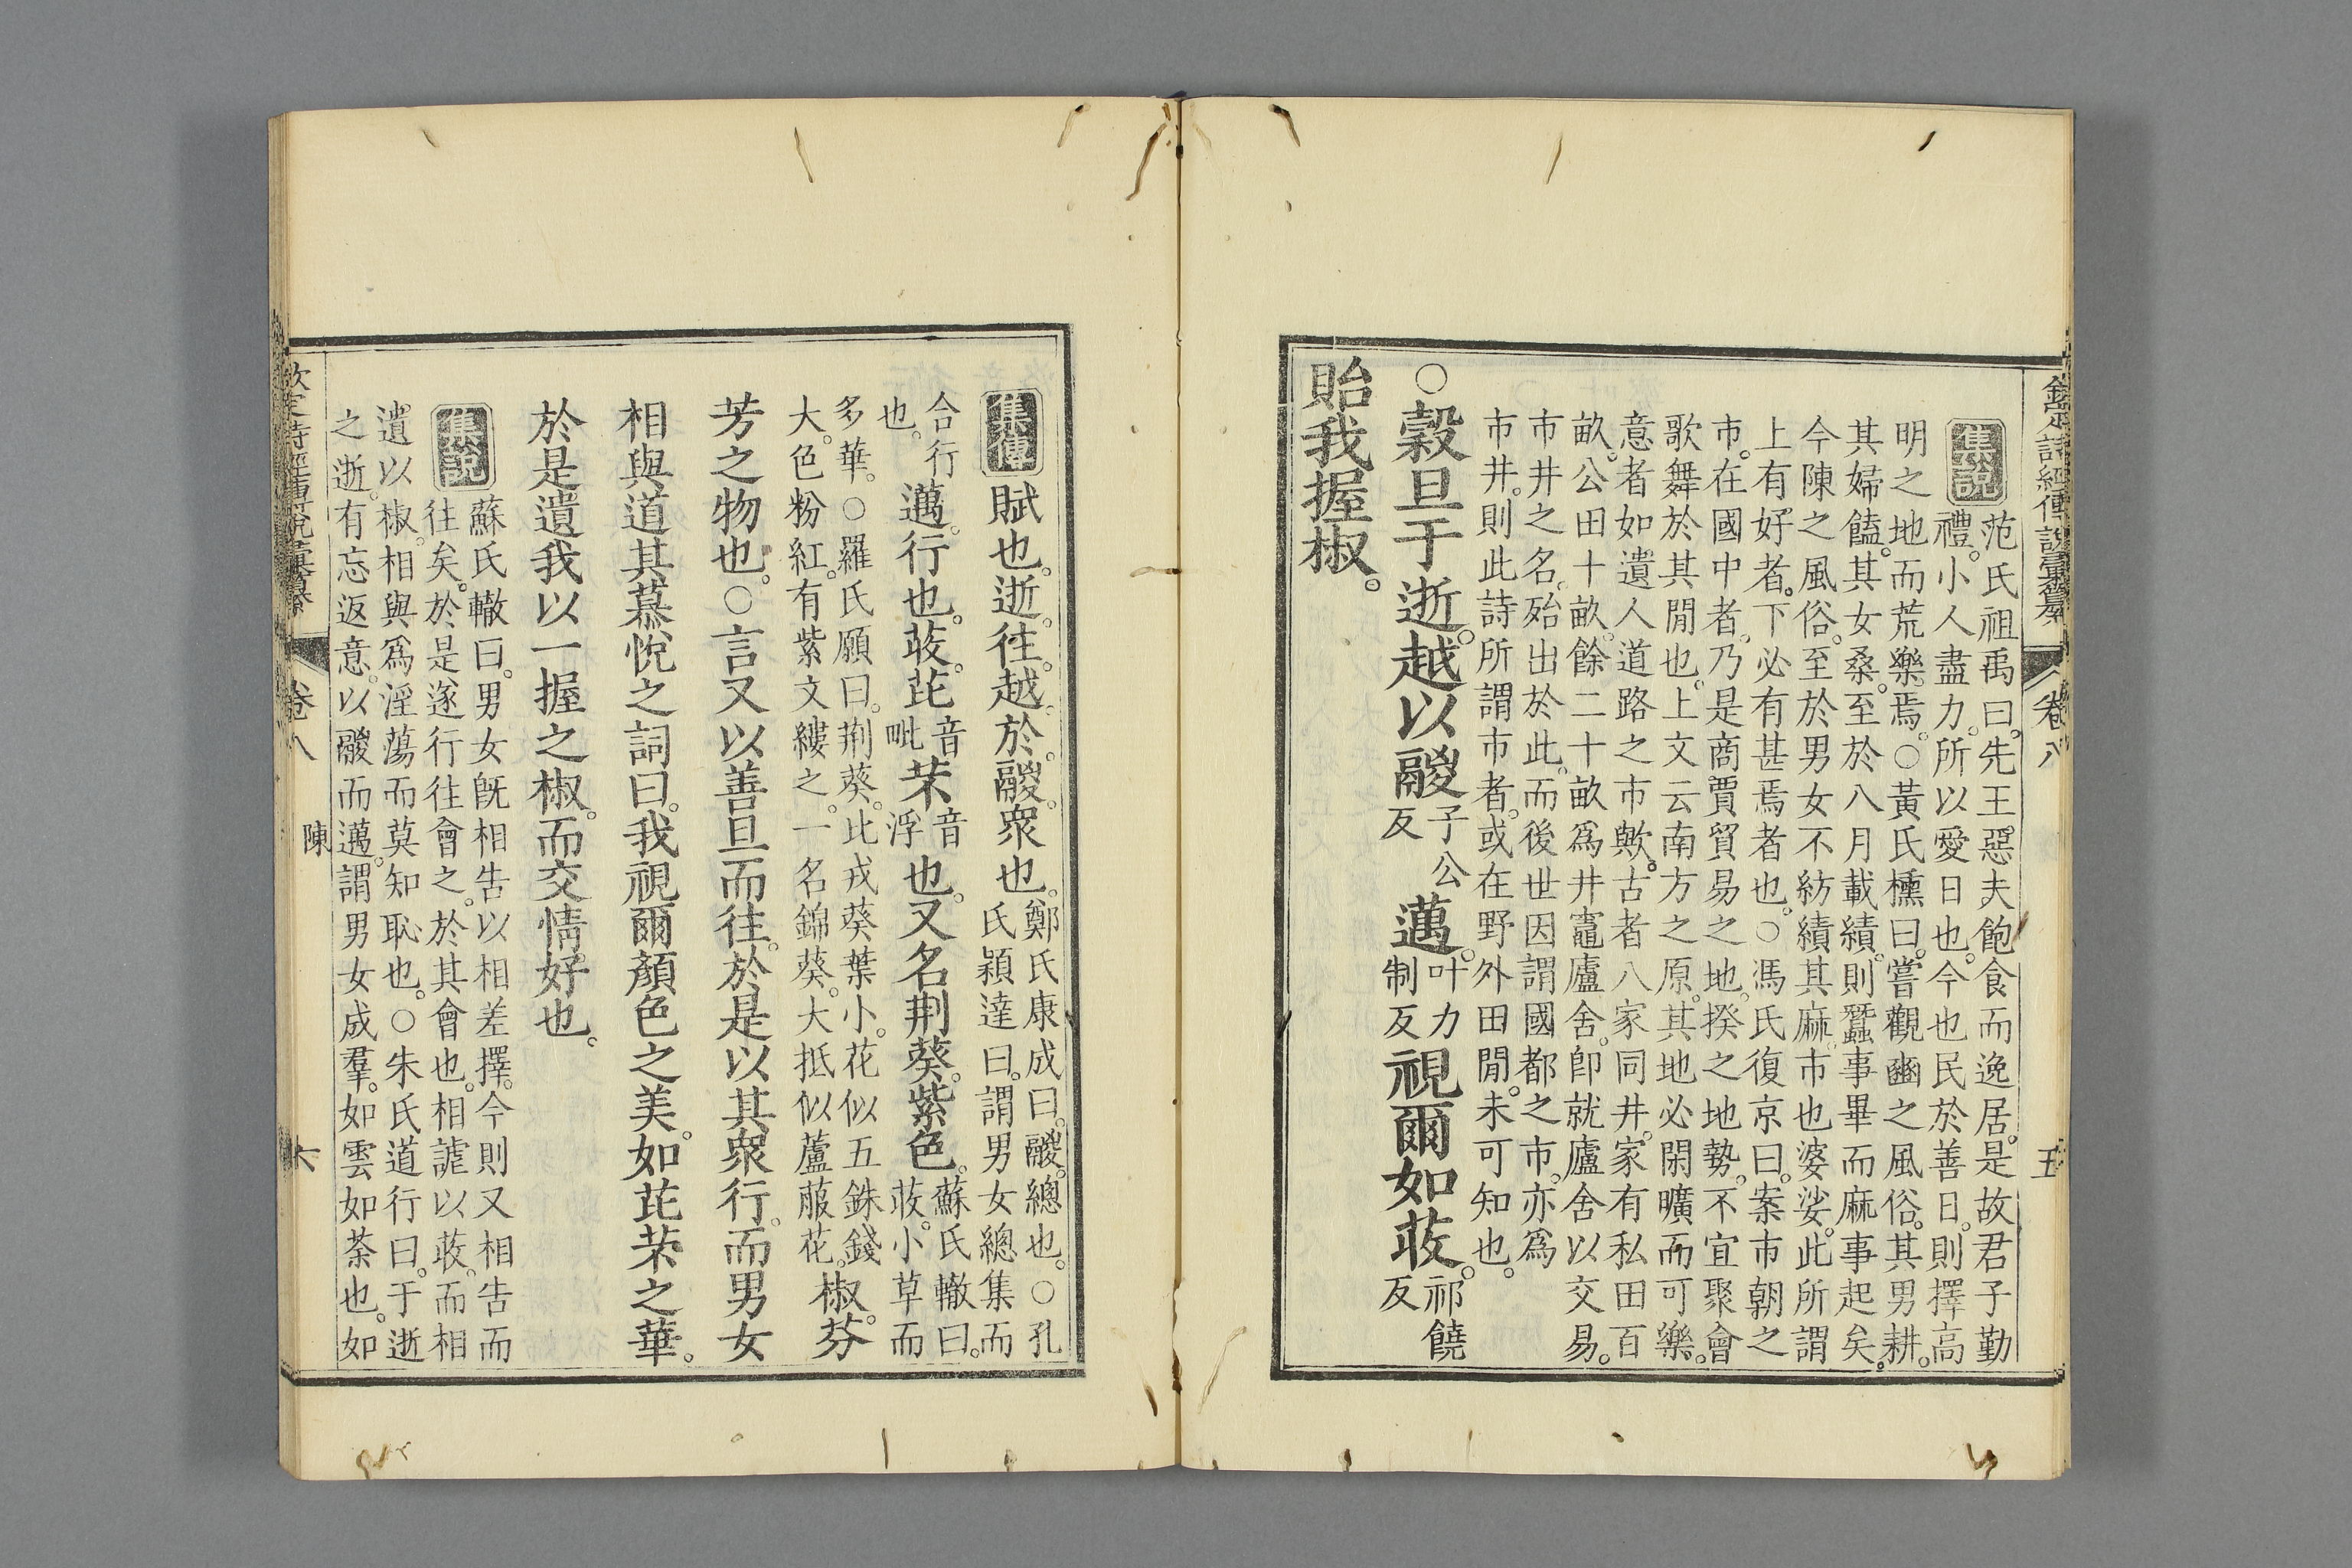 欽定詩經傳說彙纂 卷八 五
集說 范氏祖禹曰。先王惡夫飽食而逸居。是故君子勤
禮。小人盡力。所以愛日也。今也民於善日。則擇高
明之地而荒樂焉。○黃氏櫄曰。嘗觀豳之風俗。其男耕。
其婦饁。其女桑。至於八月載績。則蠶事畢而麻事起矣。
今陳之風俗。至於男女不紡績其麻。市也婆娑。此所謂
上有好者。下必有甚焉者也。○馮氏復京曰。案市朝之
市。在國中者。乃是商賈貿易之地。揆之地勢。不宜聚會
歌舞於其閒也。上文云南方之原。其地必閑曠而可樂。
意者如遺人道路之市歟。古者八家同井。家有私田百
畝。公田十畝。餘二十畝爲井竈廬舍。卽就廬舍以交易。
市井之名。殆出於此。而後世因謂國都之市。亦爲
市井。則此詩所謂市者。或在野外田閒。未可知也。
○穀旦于逝。越以鬷子公反邁。叶力制反視爾如荍。祁饒反
貽我握椒。
集傳 賦也。逝。往。越。於。鬷。衆也。鄭氏康成曰。鬷。總也。○孔
氏穎達曰。謂男女總集而
合行也。邁。行也。荍。芘音毗芣音浮也。又名荆葵。紫色。蘇氏轍曰。荍。小草而
多華。○羅氏願曰。荆葵。比戎葵葉小。花似五銖錢
大。色粉紅。有紫文縷之。一名錦葵。大抵似蘆菔花。椒。芬
芳之物也。○言又以善旦而往。於是以其衆行。而男女
相與道其慕悅之詞曰。我視爾顏色之美。如芘芣之華。
於是遺我以一握之椒。而交情好也。
集說 蘇氏轍曰。男女旣相告以相差擇。今則又相告而
往矣。於是遂行往會之。於其會也。相謔以荍。而相
遺以椒。相與爲淫蕩而莫知恥也。○朱氏道行曰。于逝
之逝。有忘返意。以鬷而邁。謂男女成羣。如雲如荼也。如
欽定詩經傳說彙纂 卷八 陳 六